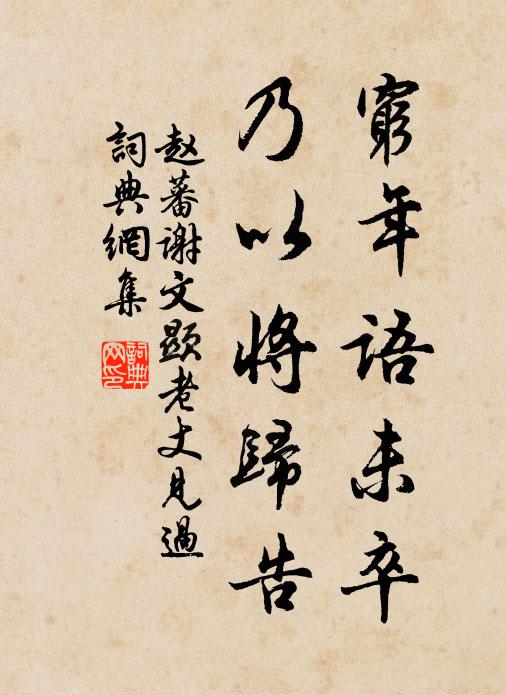 窮年語未卒
乃以將歸告
赵蕃谢文顯老丈見過
詞典網集
詞典网印